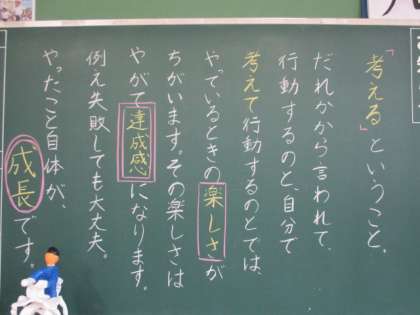 「考える」ということ。
だれかから言われて、
行動するのと、自分で
考えて行動するのとでは、
やっているときの楽しさが
ちがいます。その楽しさは
やがて達成感になります。
例え失敗しても大丈夫。
やったこと自体が、
成長です。